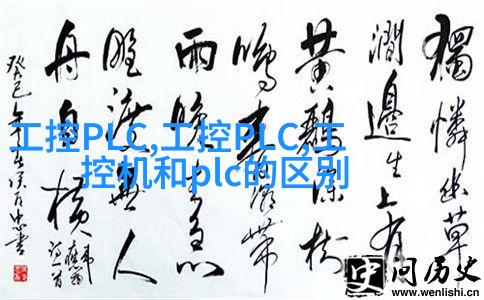 獨憐幽草
澗邊生上有
黃鸝深樹
鳴春潮帶
雨晚来急
野渡無人
舟自横
工控PLC,工控PLC,工
控机和plc的区别
问历史
www.wenlishi.cn